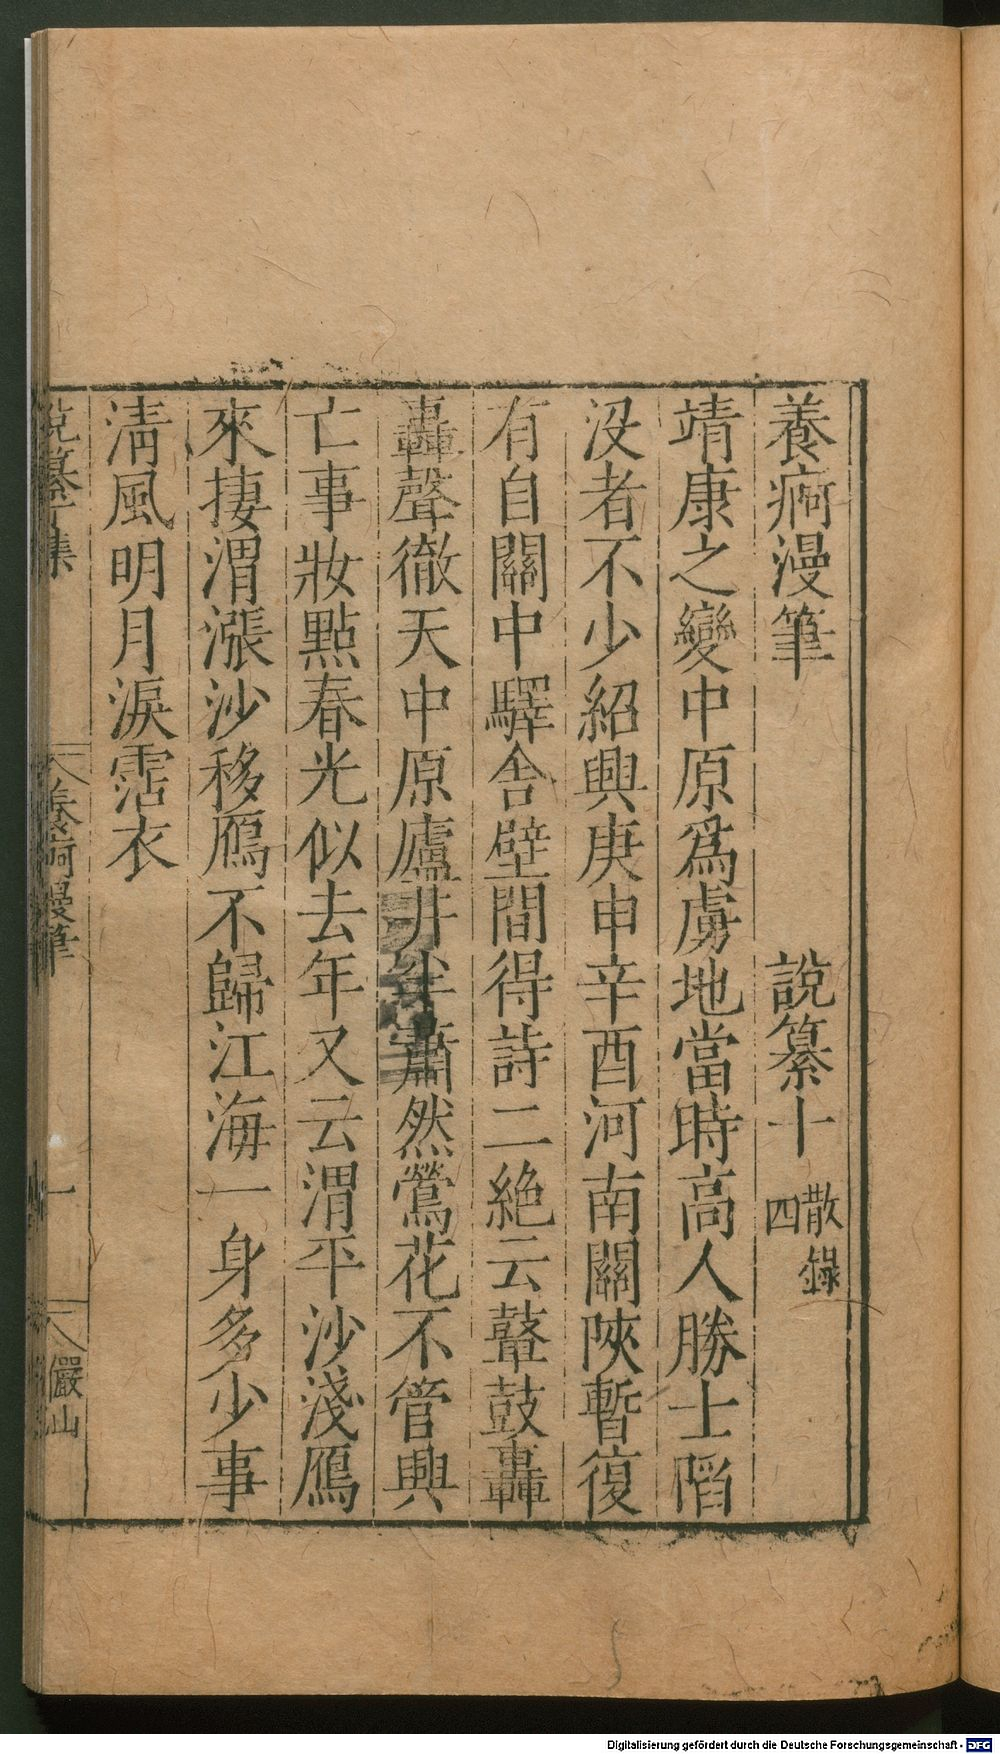 養痾漫筆　說纂十 散錄四
靖康之變中原爲虜地當時高人勝士陷
沒者不少紹興庚申辛酉河南關陝暫復
有自關中驛舍壁間得詩二絶云鼙鼓轟
轟聲徹天中原廬井半蕭然鶯花不管興
亡事妝點春光似去年又云渭平沙淺鴈
來捿渭漲沙移鴈不歸江海一身多少事
淸風明月淚霑衣
說纂十集
養痾漫筆
一
儼山
Digitalisierung gefördert durch die Deutsche Forschungsgemeinschaft - DFG